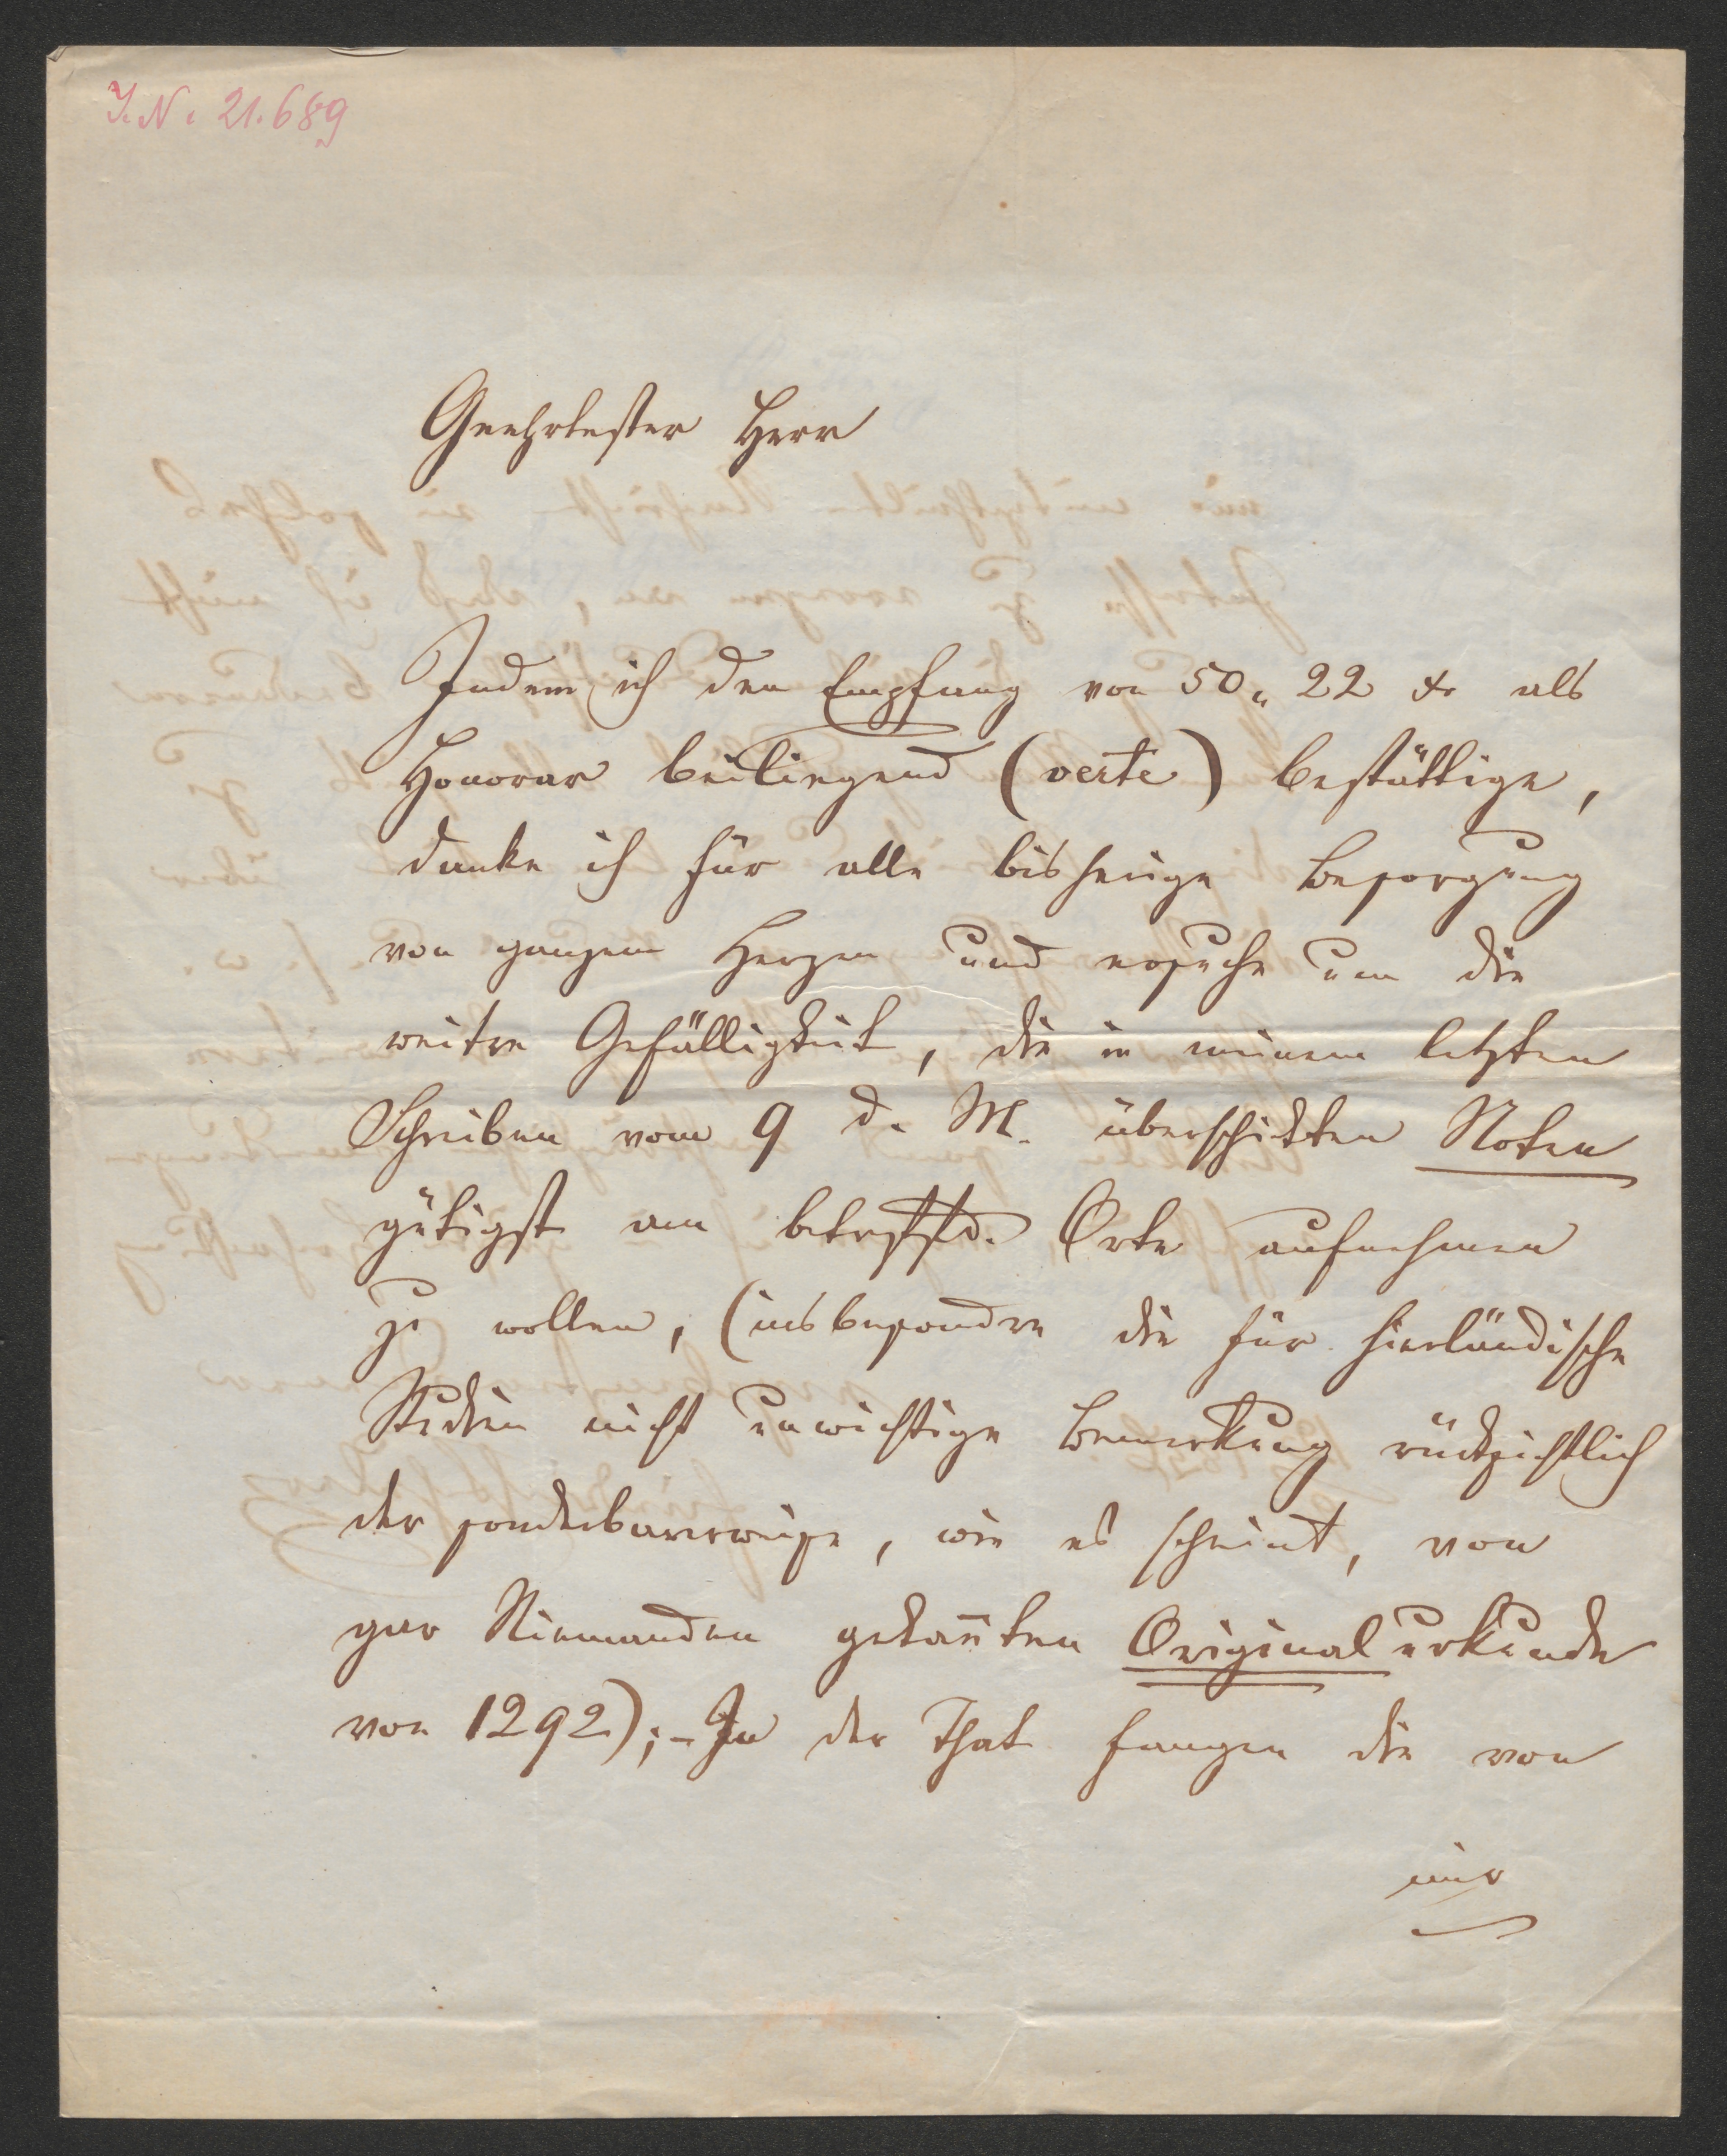 I. N. 21.689
Geehrtester Herr
Indem ich den Empfang von 50 „ 22 xr als
Honorar beiliegend (verte) bestättige,
danke ich für alle bisherige Besorgung
von ganzem Herzen und ersuche um die
weitre Gefälligkeit, die in meinem letzten
Schreiben vom 9 d. M. überschikten Noten
gütigst am betreffd. Orte aufnehmen
zu wollen, (insbesondre die für hierländische
Studien nicht unwichtige Bemerkung rücksichtlich
der sonderbarerweise, wie es scheint, von
gar Niemanden gekan̄ten Originalurkunde
von 1292); - In der That fangen die von
mir